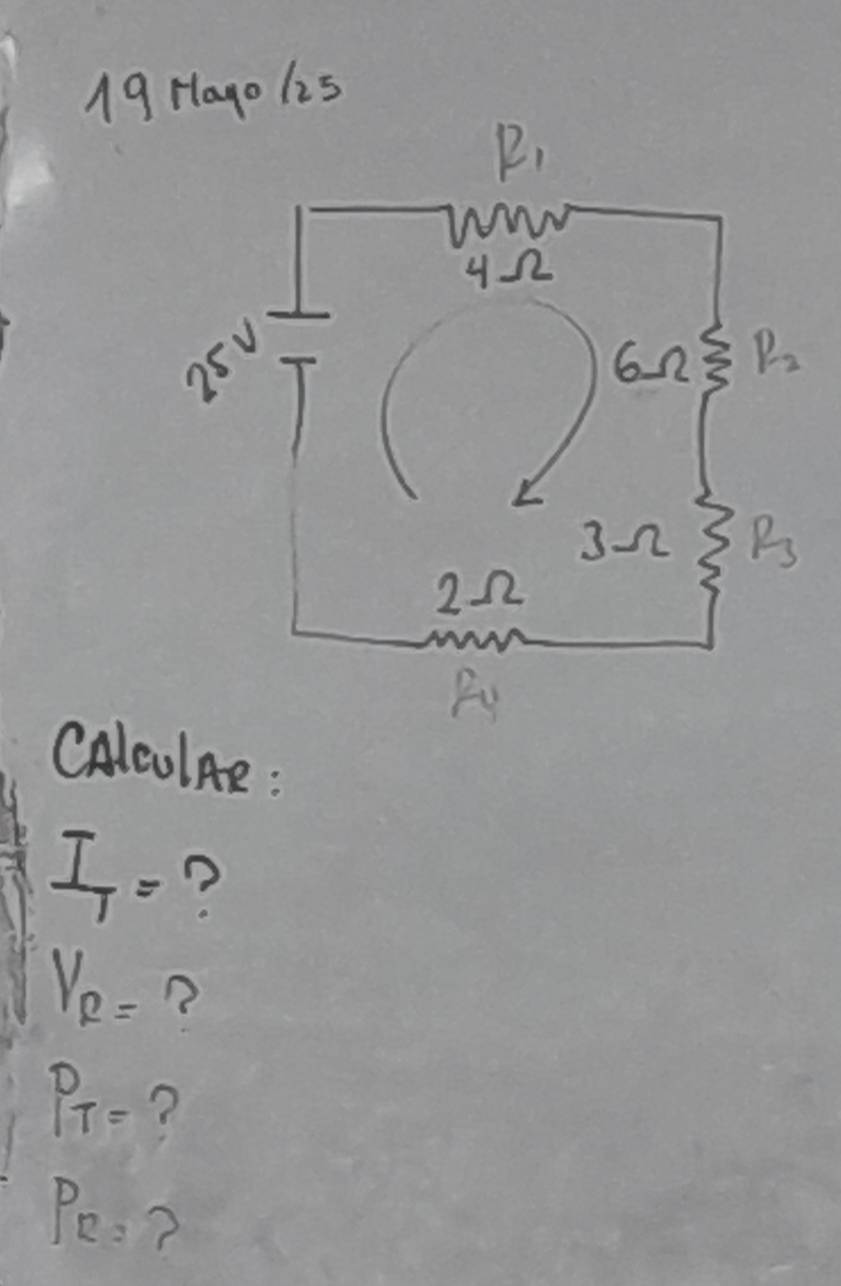 19 Mayo /25
R1
4Ω
25V
6Ω R2
3Ω R3
2Ω
R4
CAlculAR:
IT = ?
VR = ?
PT = ?
PR = ?